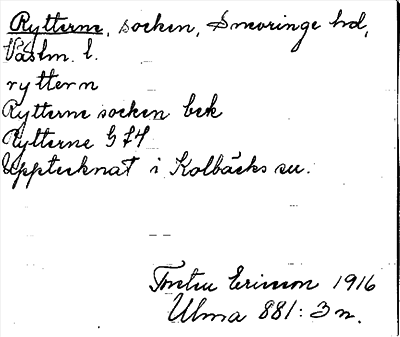 Rytterne, socken, Snevringe hd,
Västm. l.
ryttern
Rytterne socken bek
Rytterne G
Upptecknat i Kolbäcks sn.
Torsten Ericsson 1916
Ulma 881: 3 n.